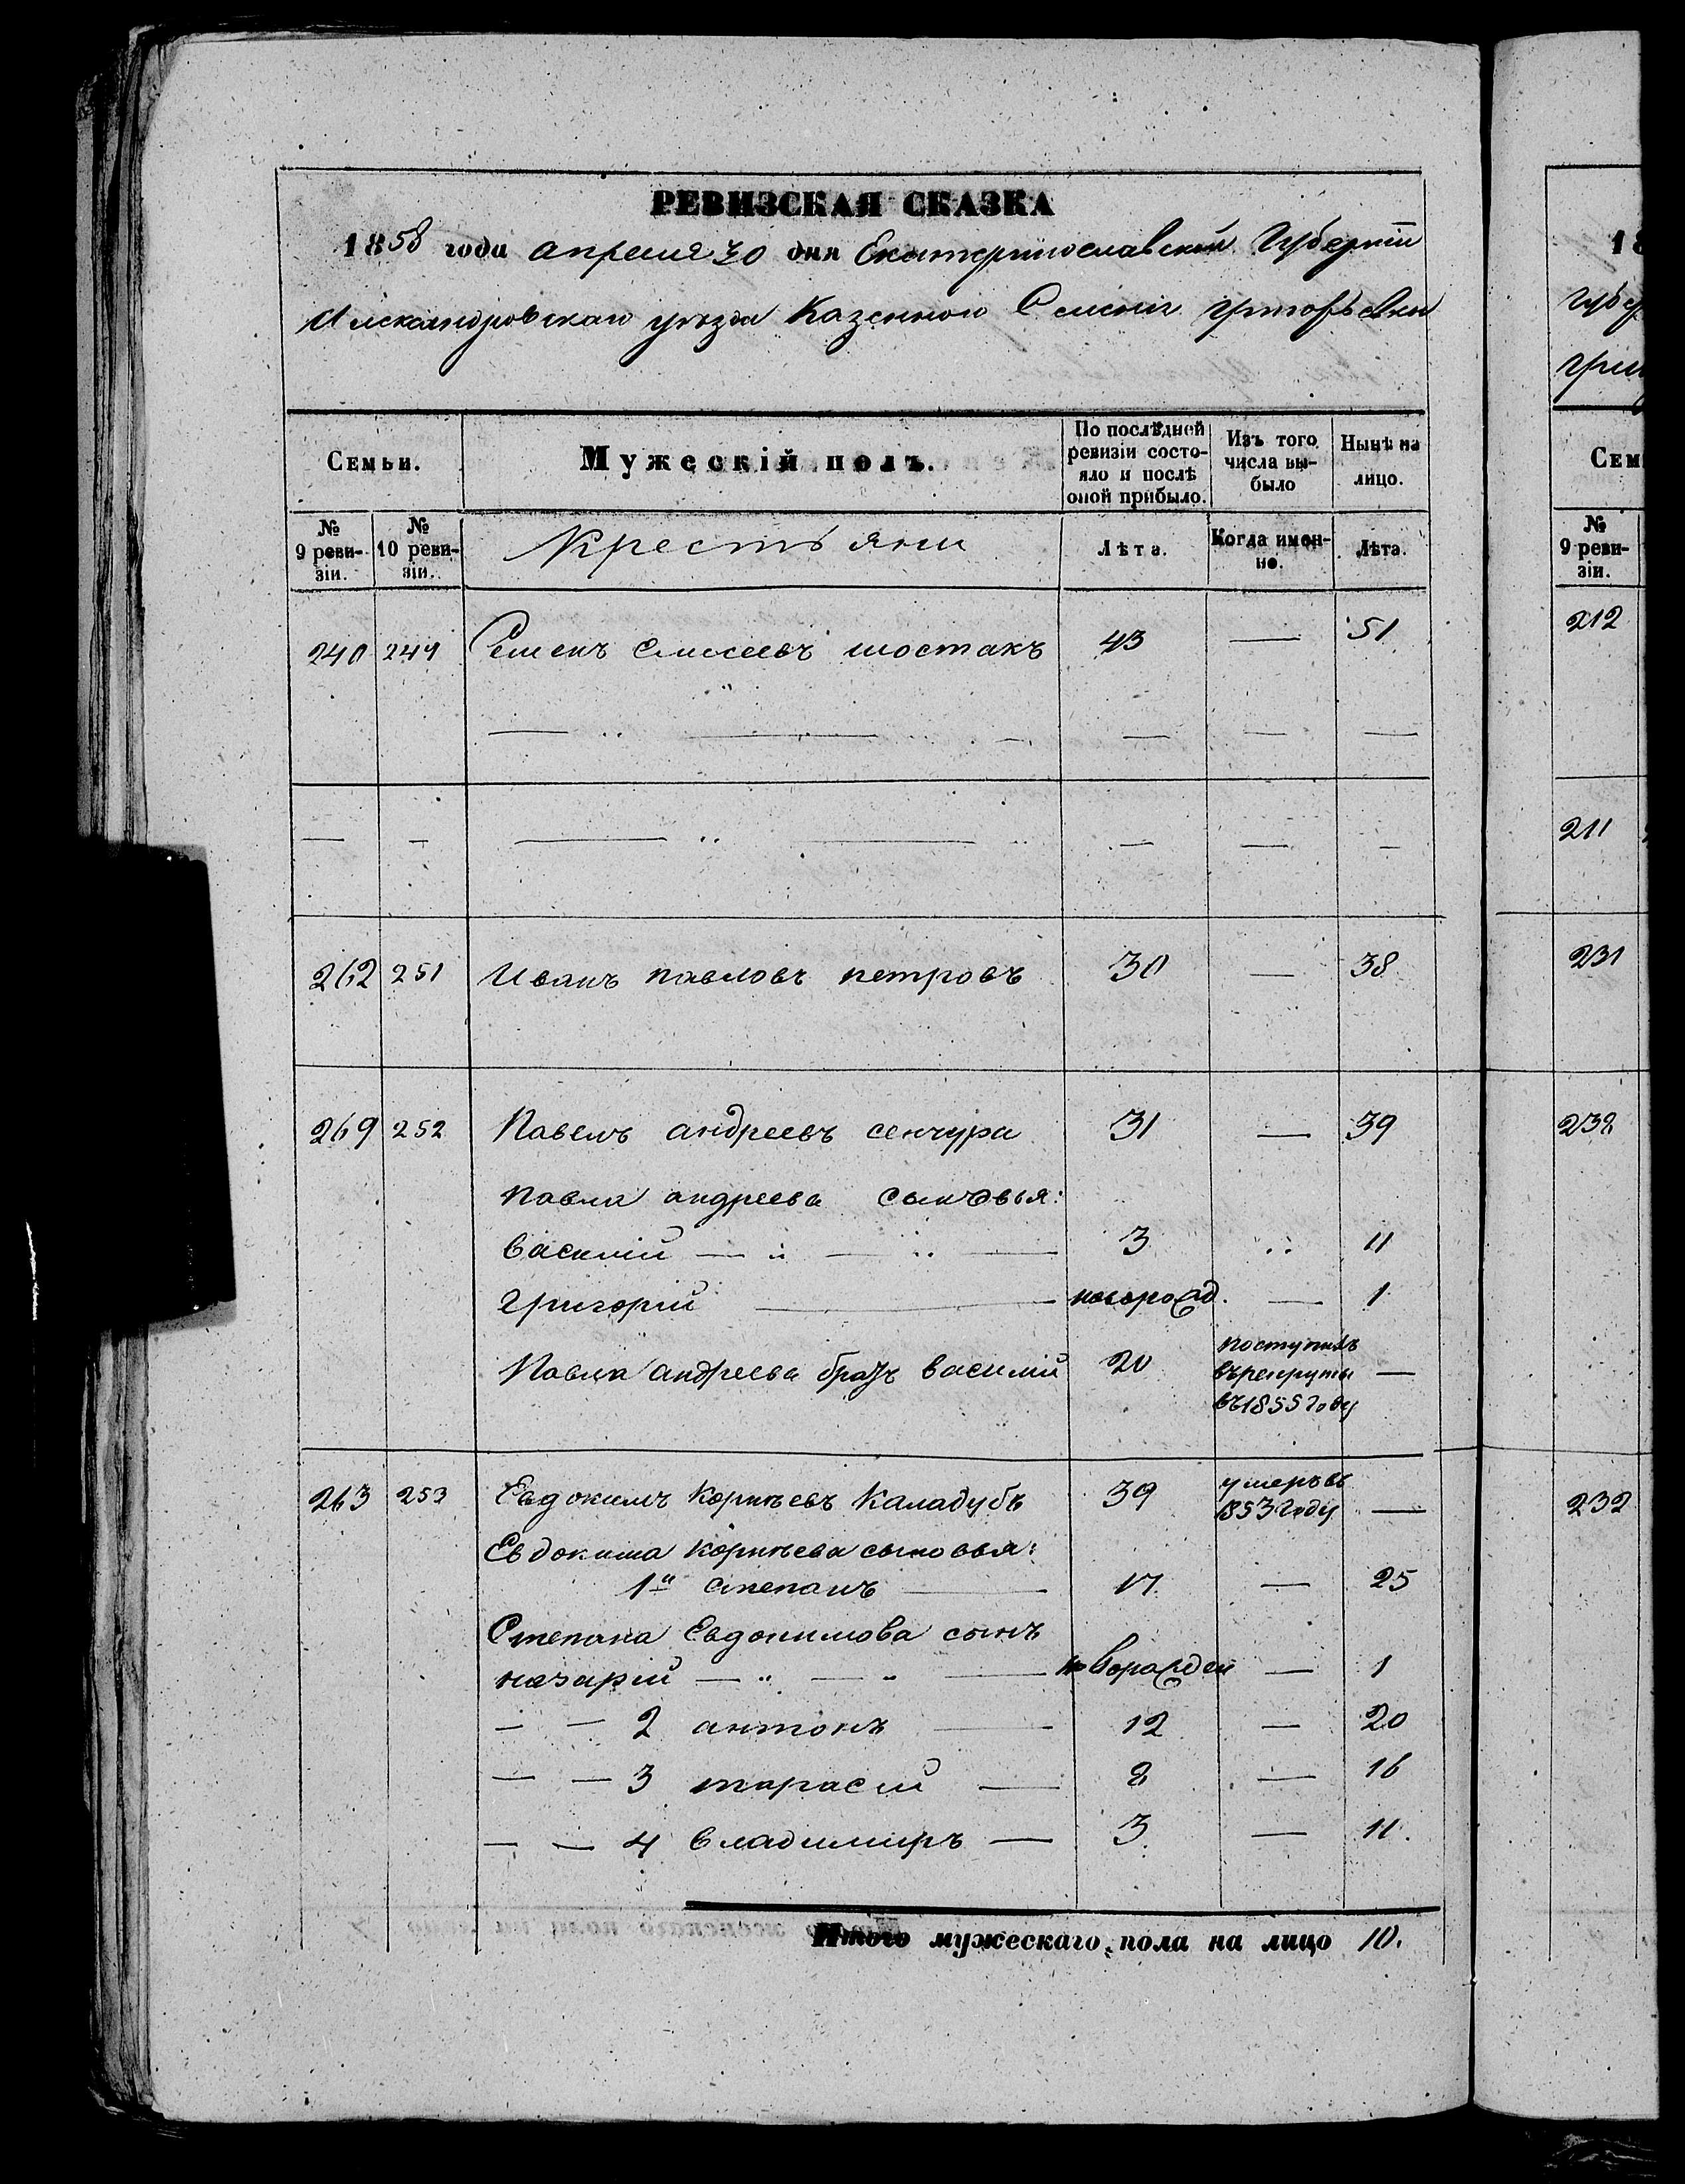 РЕВИЗСКАЯ СКАЗКА
1858 года апреля 30 дня Екатеринославской Губернии
Александровскаго уезда Казенного Селения Григорьевки
Семьи.
Мужескій полъ.
По послѣдней ревизіи состояло и послѣ оной прибыло.
Изъ того числа выбыло
Нынѣ на лицо.
№ 9 ревизіи.
№ 10 ревизіи.
Крестьяни
Лѣта.
Когда именно.
Лѣта.
240 249 Семенъ Елисеевъ шостакъ 43 — 51
— — — — —
— — — — — — —
262 251 Иванъ павловъ петровъ 30 — 38
269 252 Павелъ андреевъ сенчура 31 — 39
павла андреева сыновья:
василій — " — " — 3 " 11
григорій — новорожд. — 1
Павла андреева братъ василій 20 поступилъ въ рекруты въ 1855 году —
263 253 Евдокимъ Корнѣевъ Каладубъ 39 умеръ въ 1853 году —
Евдокима Корнѣева сыновья:
1й степанъ — 17 — 25
Степана Евдокимова сынъ
назарій — " — " — новорожден — 1
— — 2 антонъ — 12 — 20
— — 3 тарасій — 8 — 16
— — 4 владимиръ — 3 — 11.
Итого мужескаго пола на лицо 10.
18
Губер
Сем
№ 9 ревизіи.
212
211
231
238
232